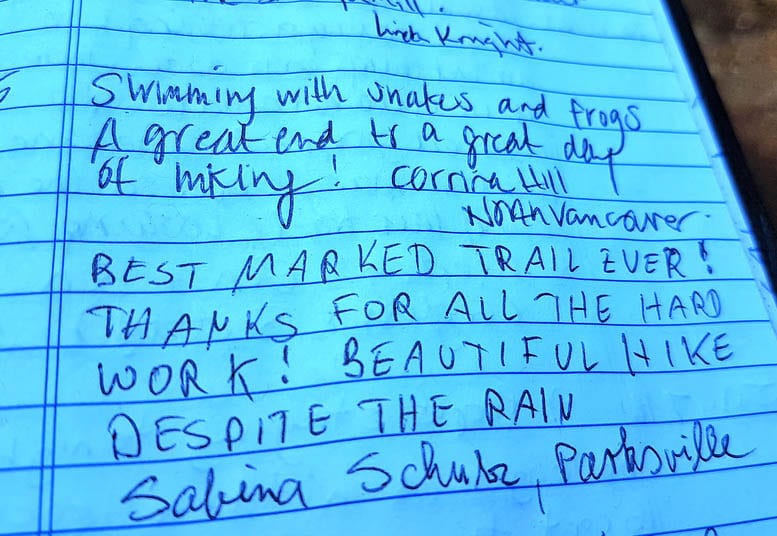 Knight.
Swimming with snakes and frogs
A great end to a great day
of hiking! Corrina Hill
North Vancouver.
BEST MARKED TRAIL EVER!
THANKS FOR ALL THE HARD
WORK! BEAUTIFUL HIKE
DESPITE THE RAIN
Sabina Schulz, Parksville